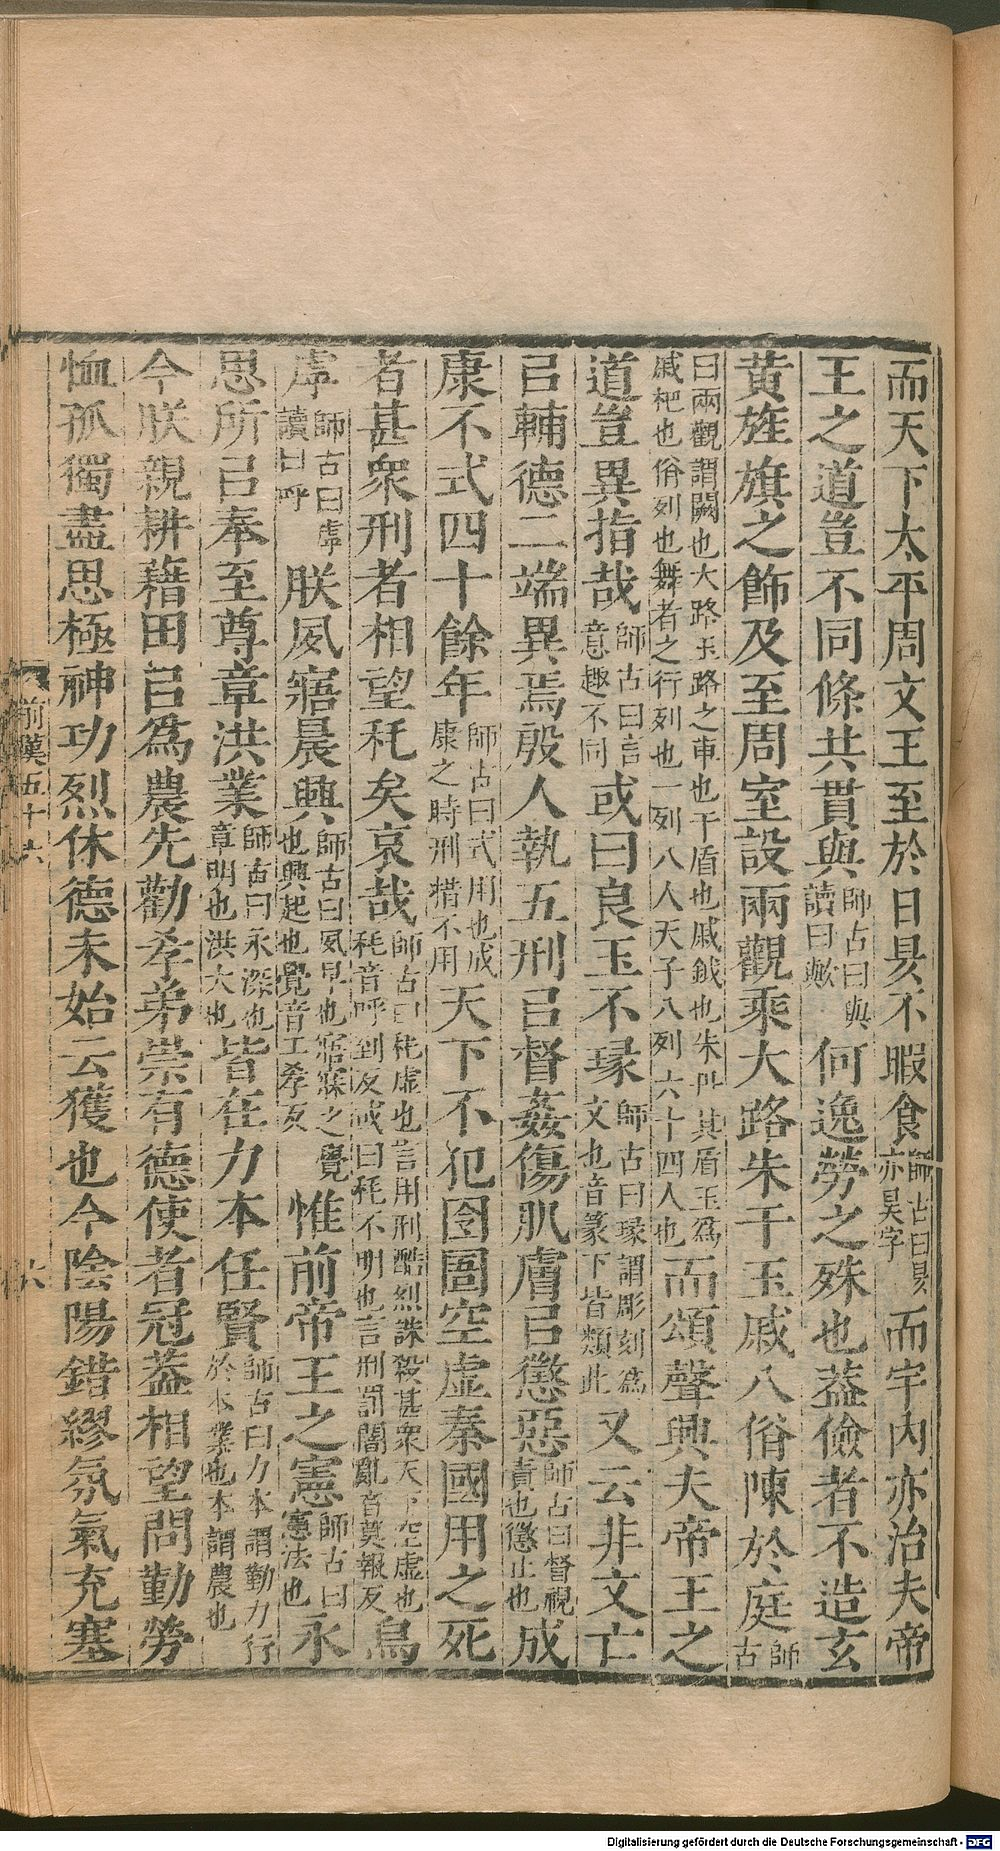 而天下太平周文王至於日昃不暇食師古曰昃亦昊字而宇内亦治夫帝
王之道豈不同條共貫與師古曰與讀曰歟何逸勞之殊也蓋儉者不造玄
黃旌旗之飾及至周室設兩觀乘大路朱干玉戚八佾陳於庭師古
曰兩觀謂闕也大路玉路之車也干盾也戚鉞也朱丹其盾玉爲戚杷也佾列也舞者之行列也一列八人天子八列六十四人也而頌聲興夫帝王之
道豈異指哉師古曰言意趣不同或曰良玉不瑑師古曰瑑謂彫刻爲文也音篆下皆類此又云非文亡
㠯輔德二端異焉殷人執五刑㠯督姦傷肌膚㠯懲惡師古曰督視責也懲止也成
康不式四十餘年師古曰式用也成康之時刑措不用天下不犯囹圄空虛秦國用之死
者甚衆刑者相望秏矣哀哉師古曰秏虛也言用刑酷烈誅殺甚衆天下空虛也秏音呼到反或曰秏不明也言刑罰闇亂音莫報反烏
虖師古曰虖讀曰呼朕夙寤晨興師古曰夙早也寤寐之覺也興起也覺音工孝反惟前帝王之憲師古曰憲法也永
思所㠯奉至尊章洪業師古曰永深也章明也洪大也皆在力本任賢師古曰力本謂勤力行於本業也本謂農也
今朕親耕藉田㠯爲農先勸孝弟崇有德使者冠蓋相望問勤勞
恤孤獨盡思極神功烈休德未始云獲也今陰陽錯繆氛氣充塞
前漢五十六
六
Digitalisierung gefördert durch die Deutsche Forschungsgemeinschaft - DFG